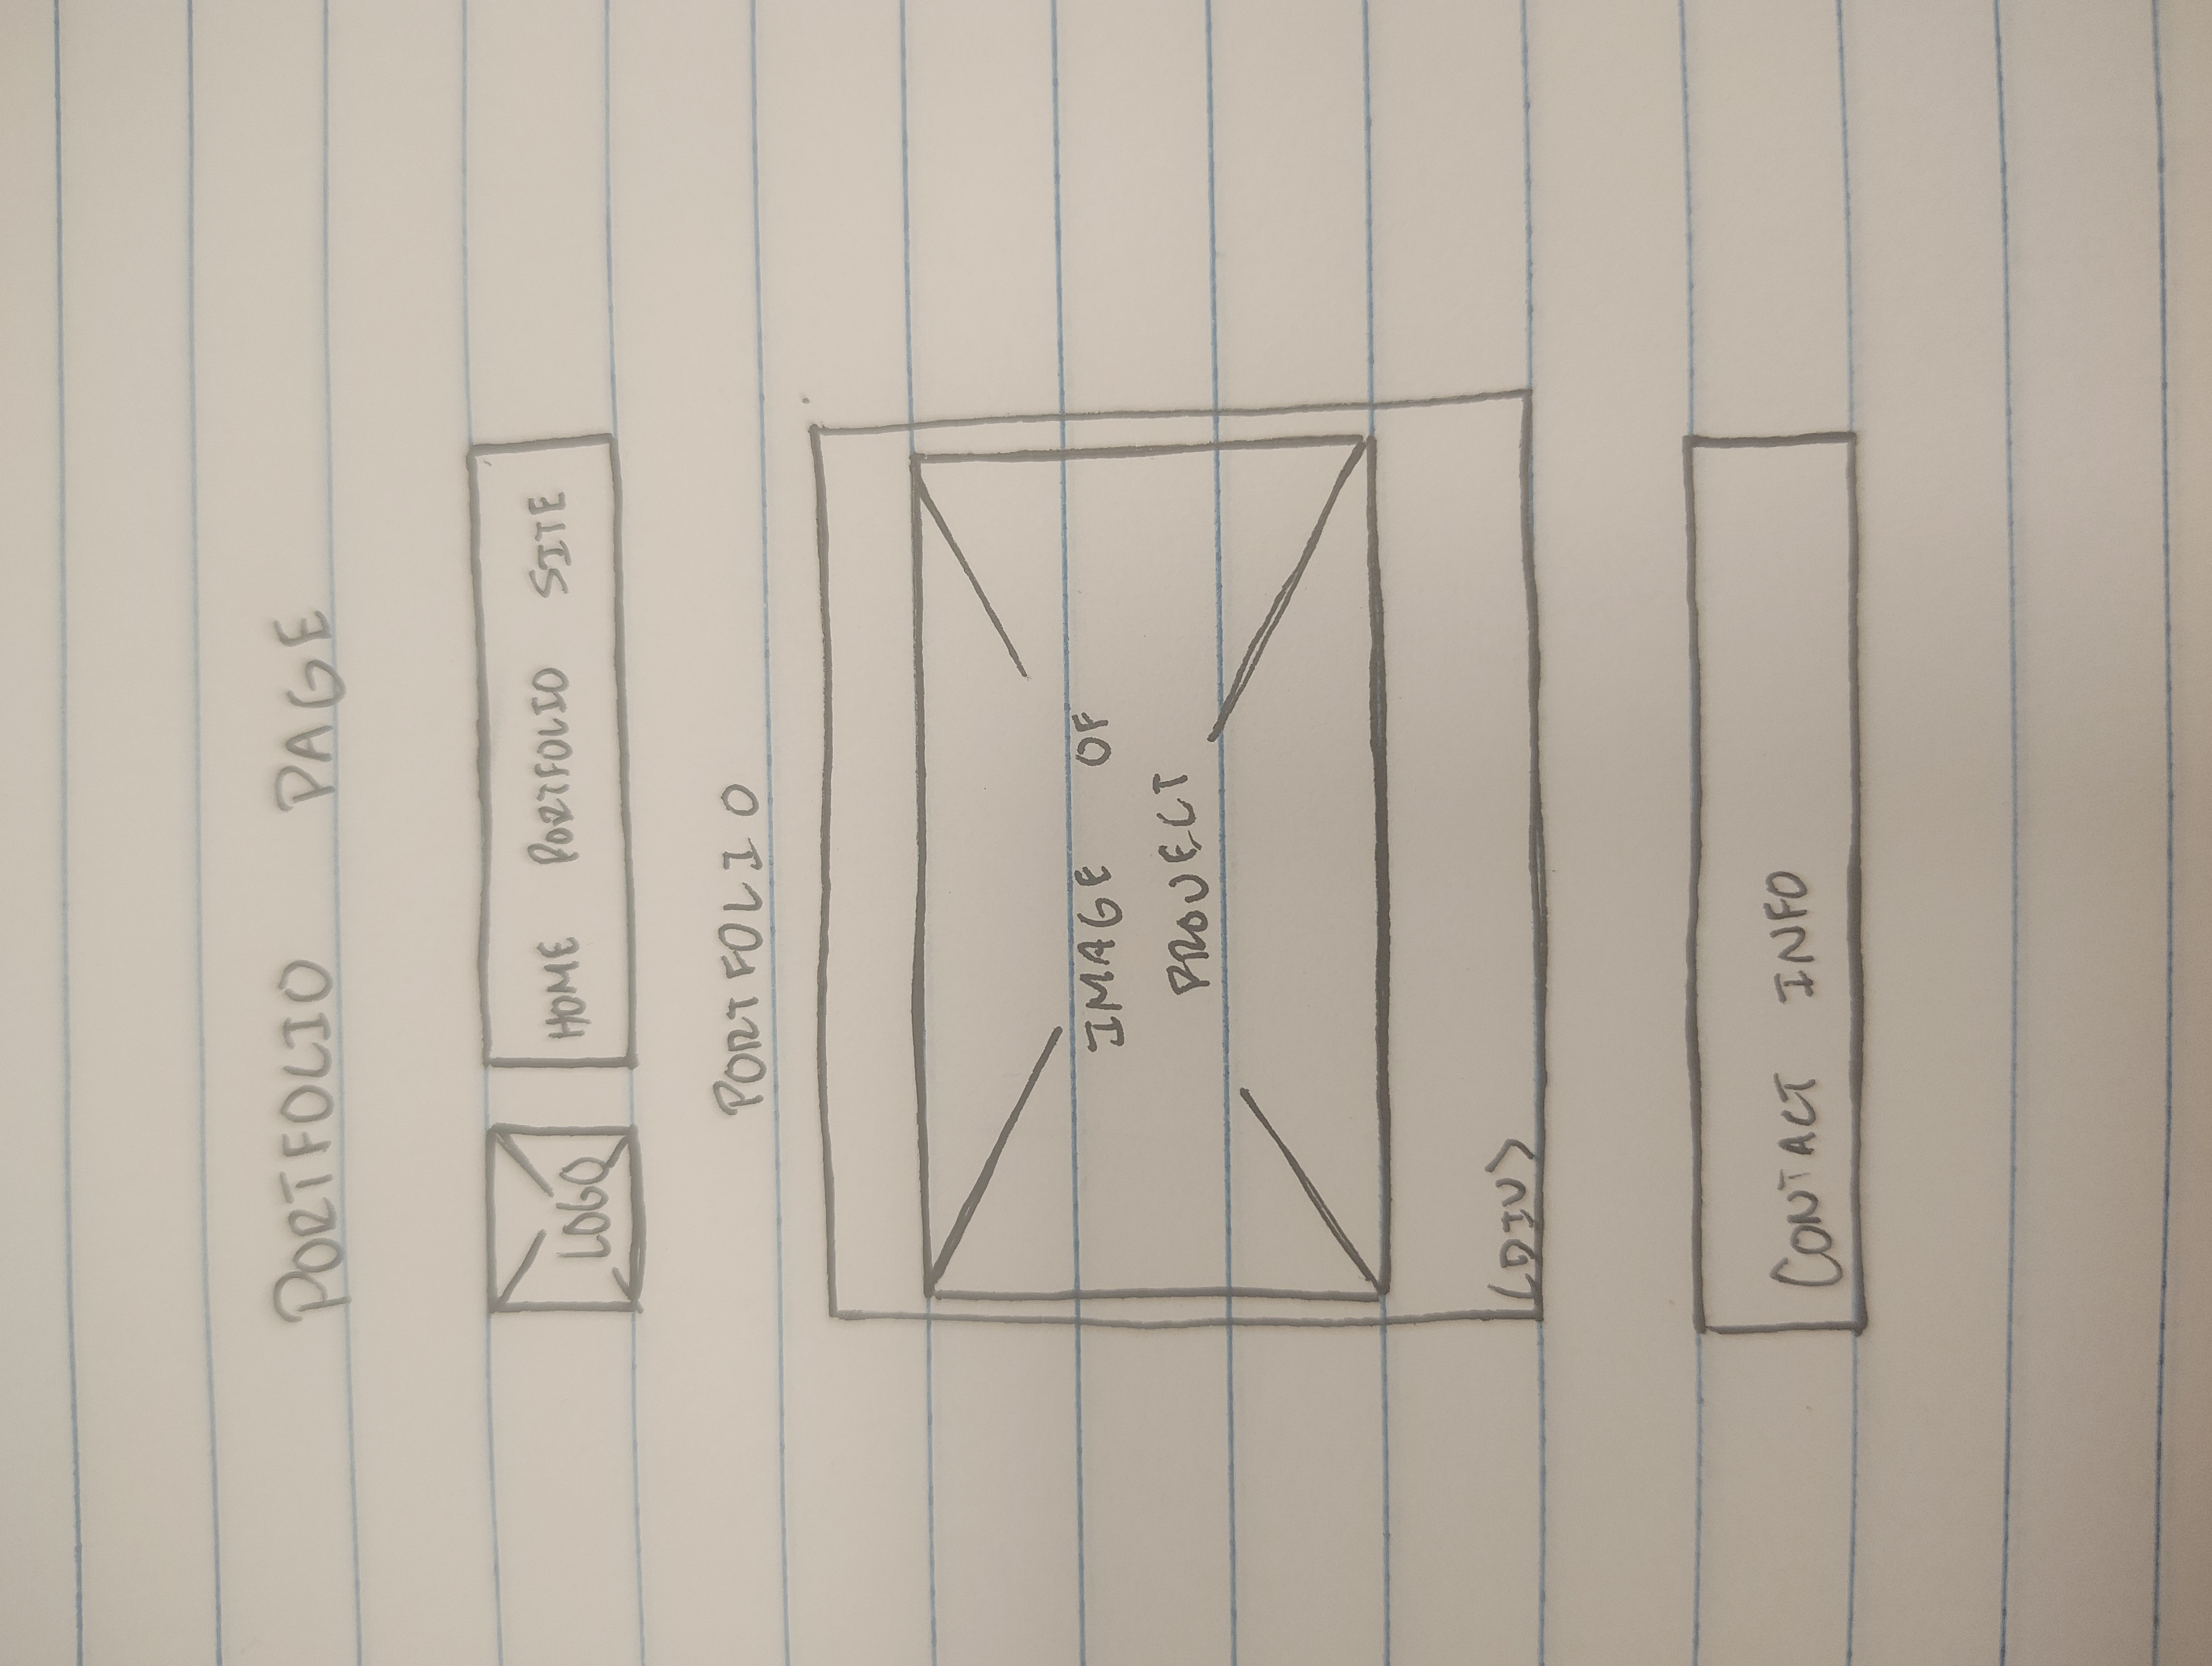 PORTFOLIO PAGE
LOGO
HOME PORTFOLIO SITE
PORTFOLIO
IMAGE OF
PROJECT
<DIV>
CONTACT INFO